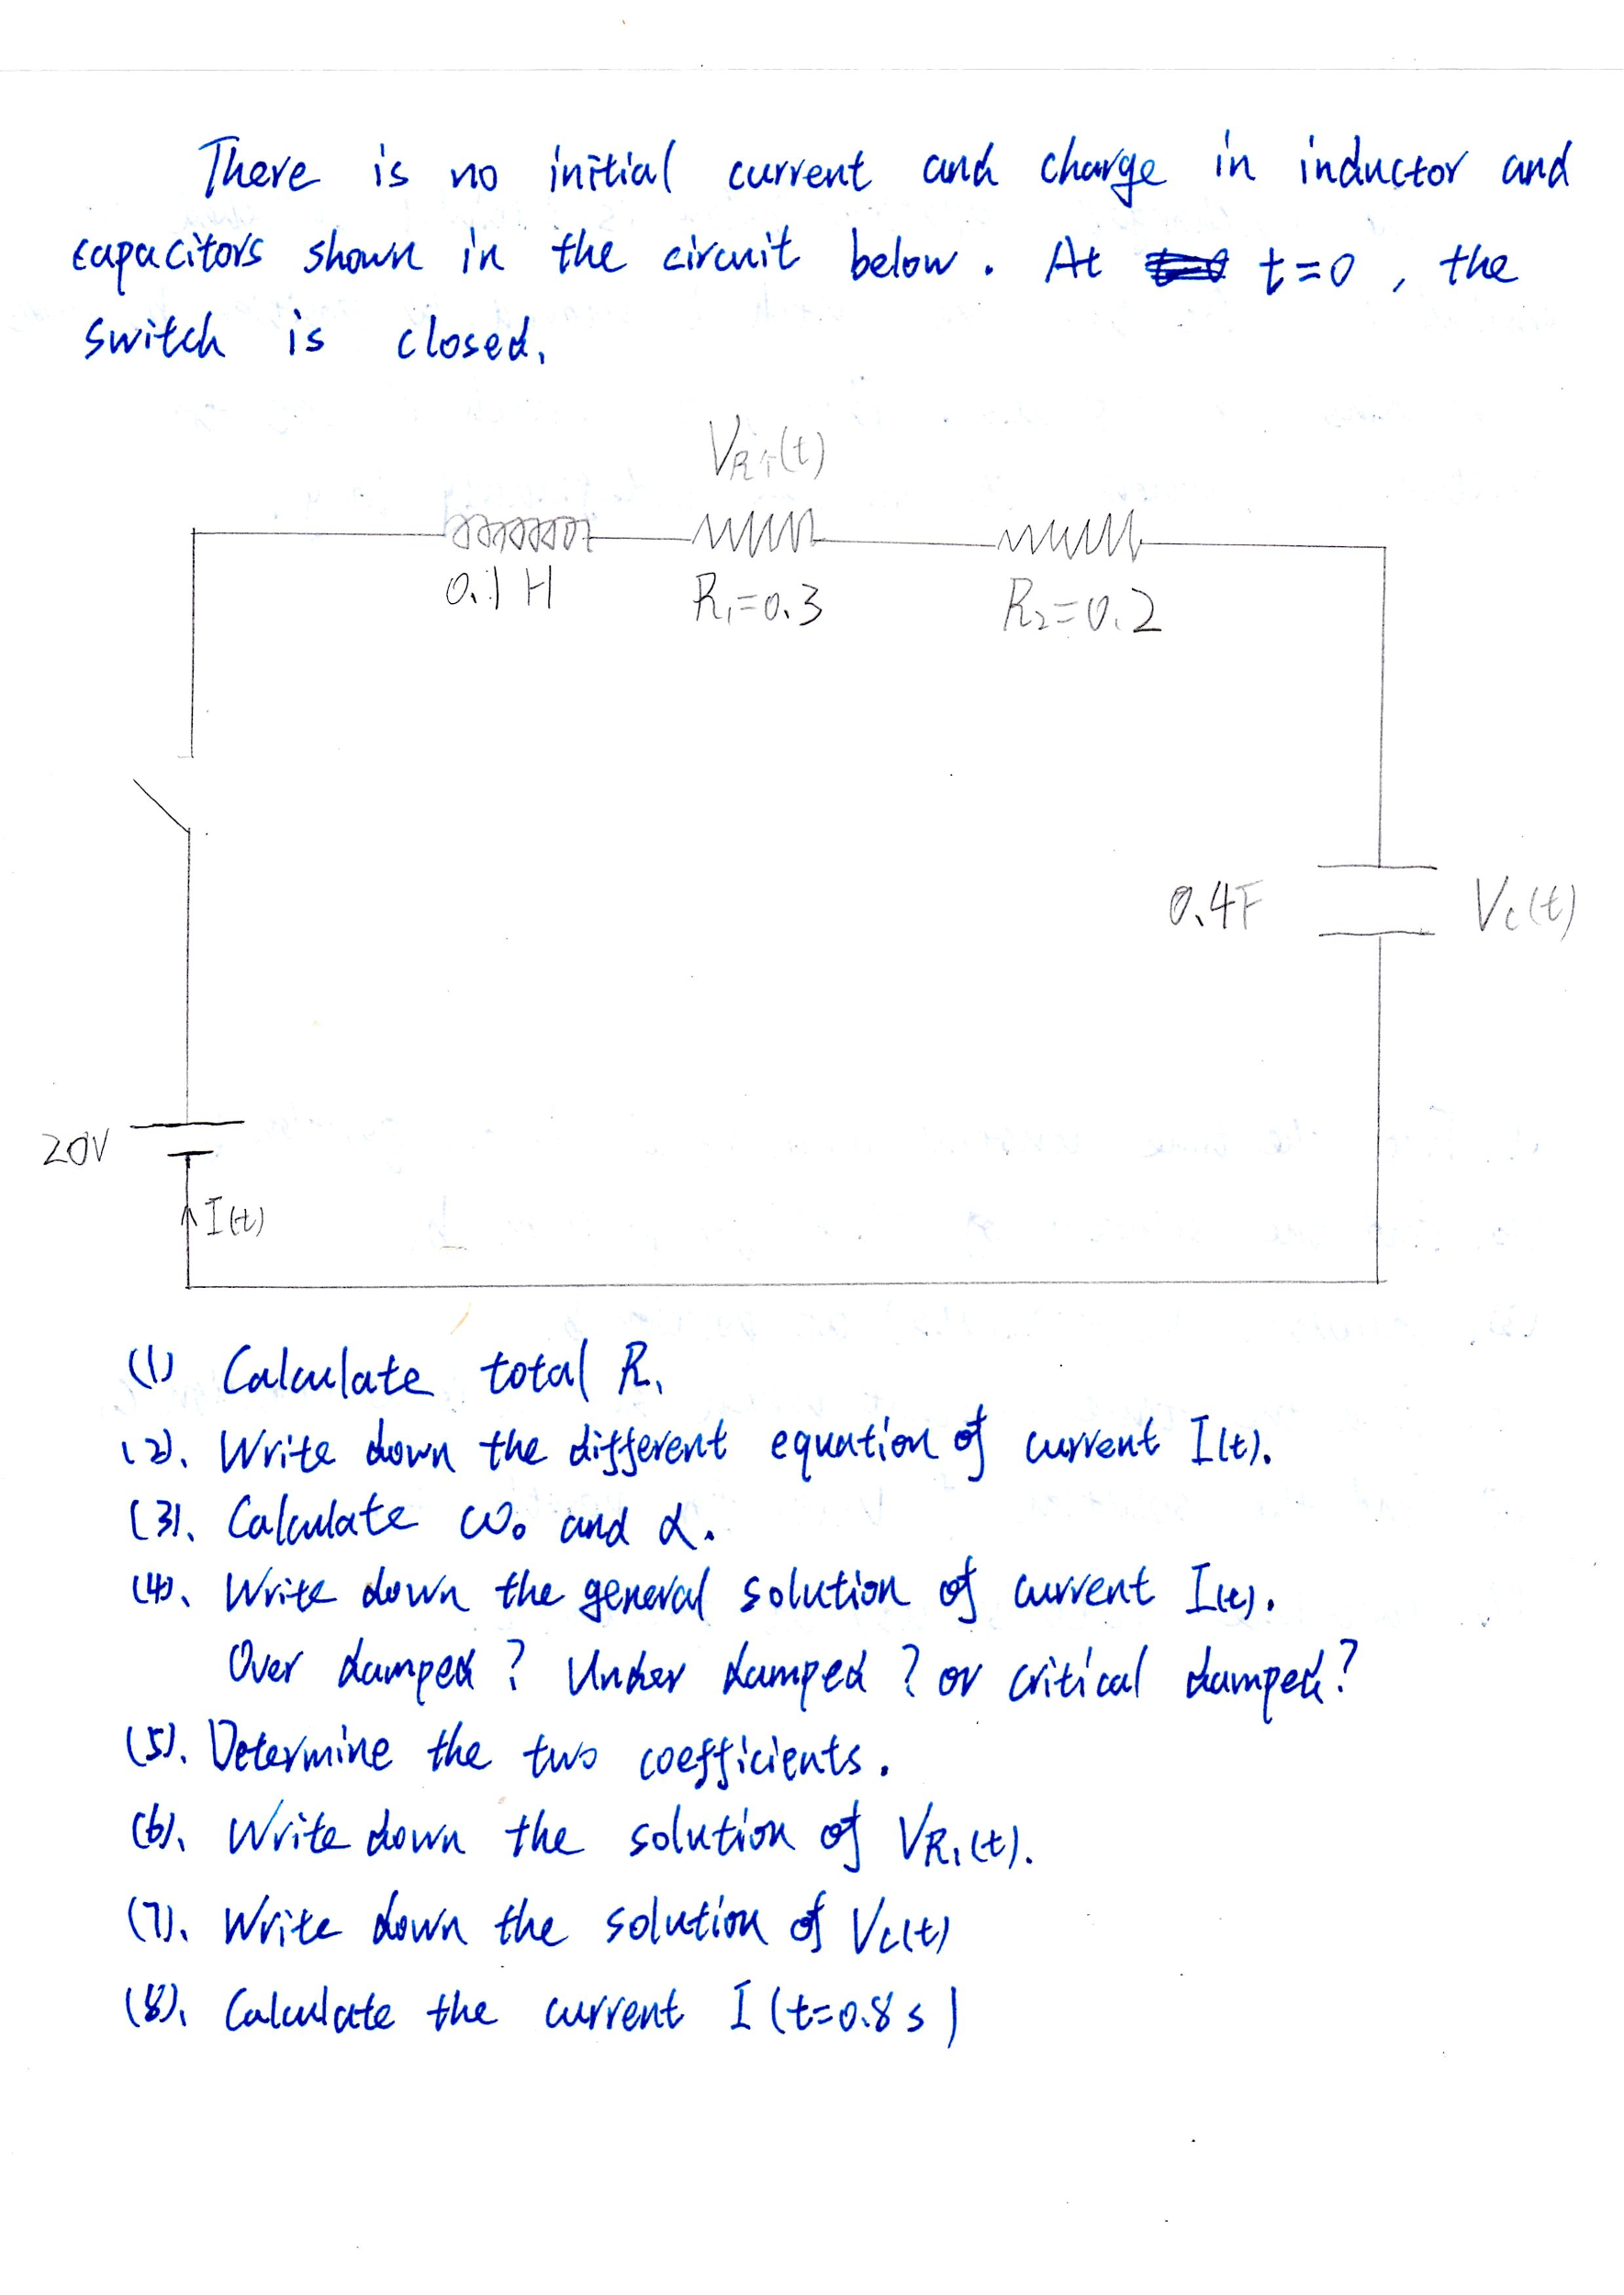 There is no initial current and charge in inductor and
capacitors shown in the circuit below. At t=0, the
switch is closed.
VR1(t)
0.1 H
R1=0.3
R2=0.2
0.4F
Vc(t)
20V
I(t)
(1) Calculate total R.
(2). Write down the different equation of current I(t).
(3). Calculate ω₀ and α.
(4). Write down the general solution of current I(t).
Over damped? Under damped? or critical damped?
(5). Determine the two coefficients.
(6). Write down the solution of VR1(t).
(7). Write down the solution of Vc(t)
(8). Calculate the current I(t=0.8s)